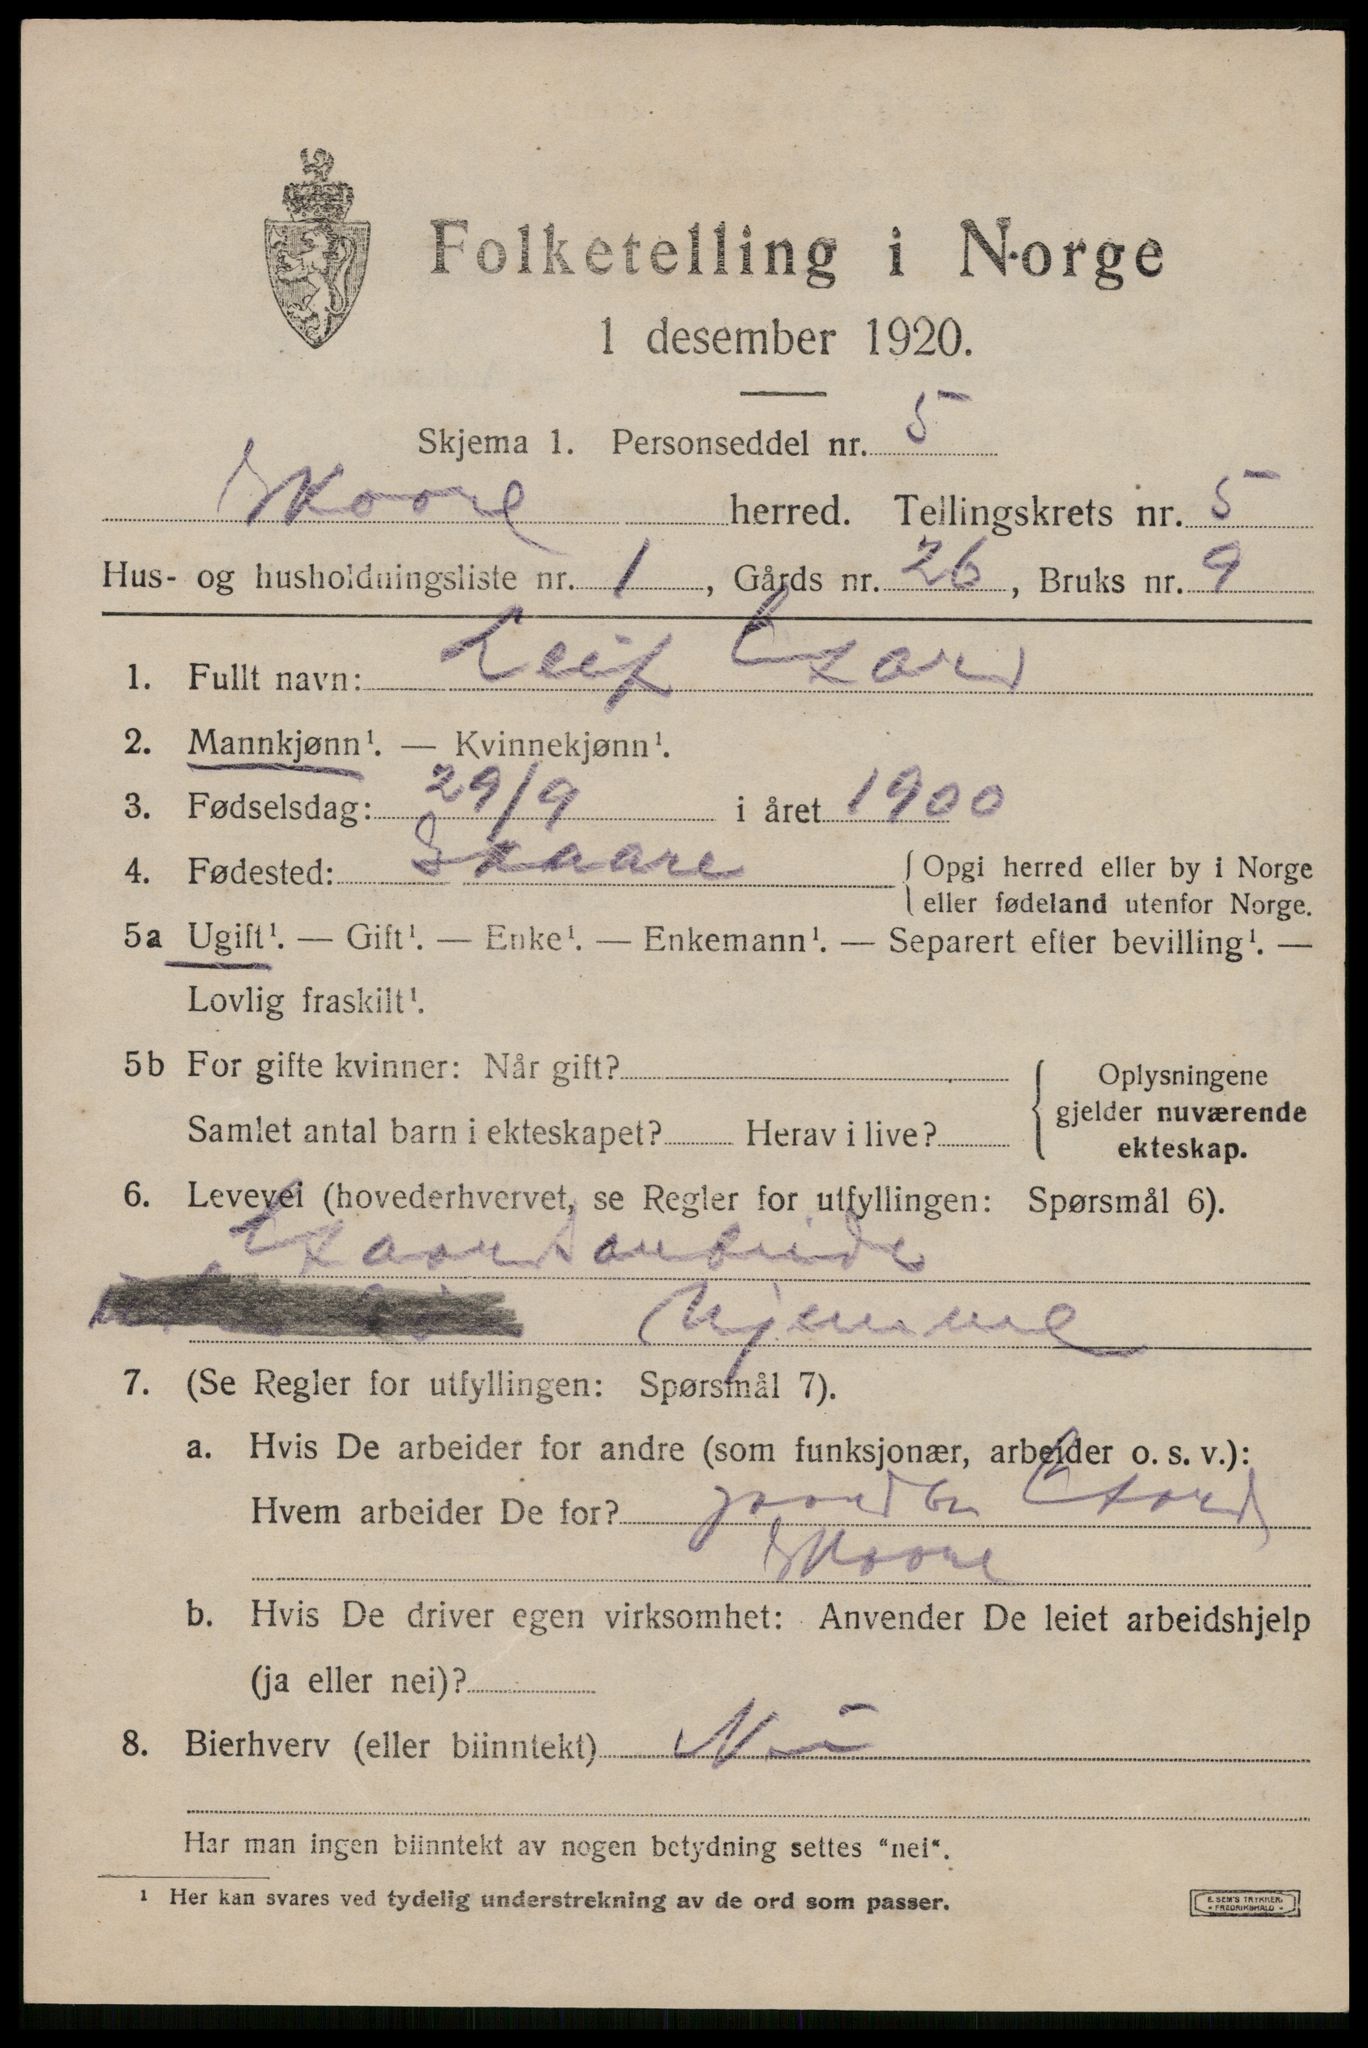 Folketelling i Norge
1 desember 1920.
Skjema 1. Personseddel nr. 5
Skaare herred. Tellingskrets nr. 5
Hus- og husholdningsliste nr. 1, Gårds nr. 26, Bruks nr. 9
1. Fullt navn: Leif
2. Mannkjønn¹. — Kvinnekjønn¹.
3. Fødselsdag: 29/9 i året 1900
4. Fødested: Skaare { Opgi herred eller by i Norge
eller fødeland utenfor Norge.
5a Ugift¹. — Gift¹. — Enke¹. — Enkemann¹. — Separert efter bevilling¹. —
Lovlig fraskilt¹.
5b For gifte kvinner: Når gift?
Samlet antal barn i ekteskapet? Herav i live?
Oplysningene
gjelder nuværende
ekteskap.
6. Levevei (hovederhvervet, se Regler for utfyllingen: Spørsmål 6).
hjemme
7. (Se Regler for utfyllingen: Spørsmål 7).
a. Hvis De arbeider for andre (som funksjonær, arbeider o. s. v.):
Hvem arbeider De for?
Skaare
b. Hvis De driver egen virksomhet: Anvender De leiet arbeidshjelp
(ja eller nei)?
8. Bierhverv (eller biinntekt) Nei
Har man ingen biinntekt av nogen betydning settes "nei".
¹ Her kan svares ved tydelig understrekning av de ord som passer.
E. SEM'S TRYKKERI
FREDRIKSHALD